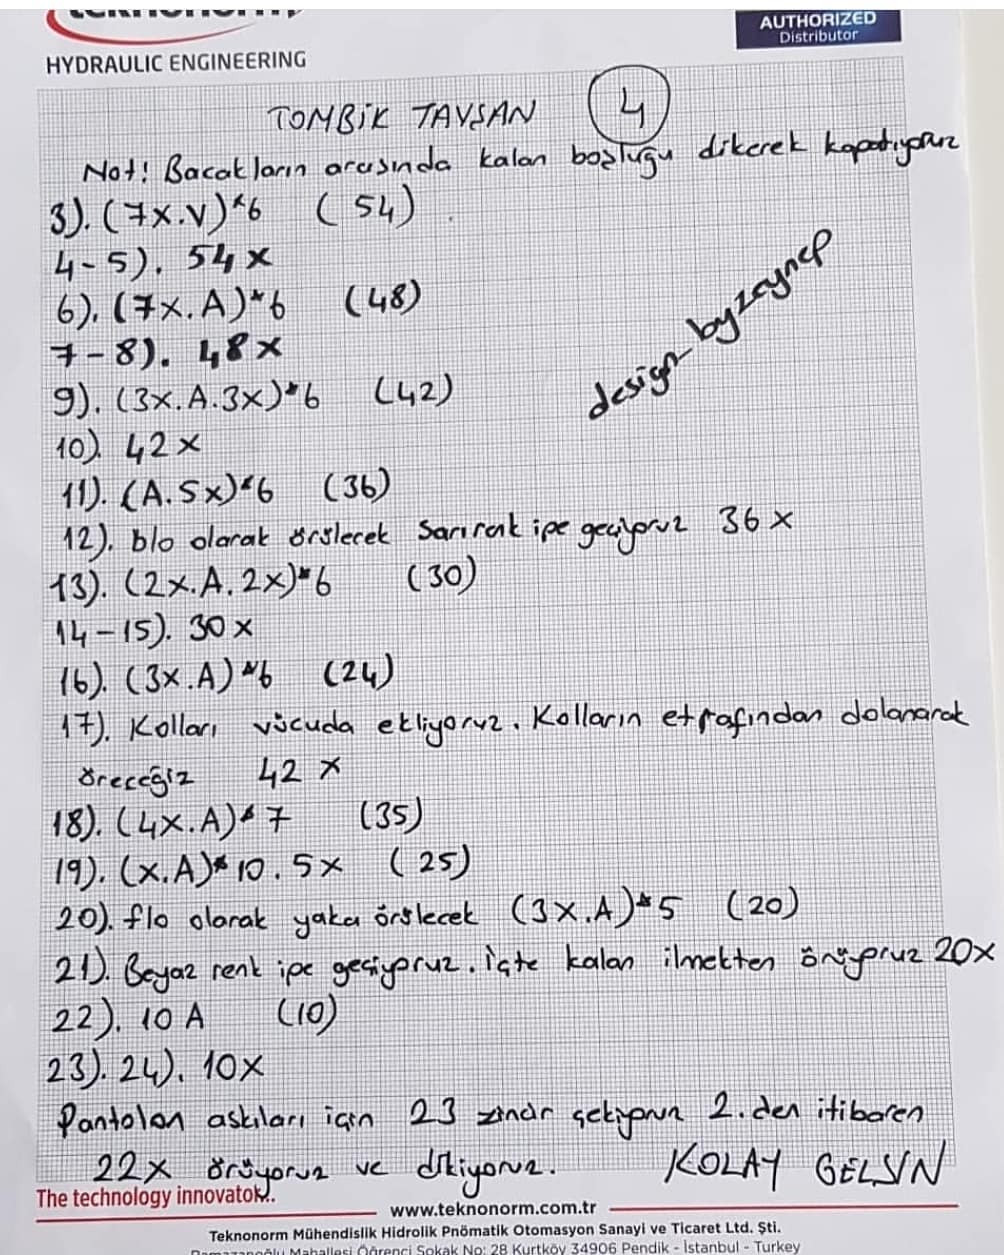 HYDRAULIC ENGINEERING
AUTHORIZED
Distributor
TOMBİK TAVŞAN 4
Not! Bacakların arasında kalan boşluğu dikerek kapatıyoruz
3). (7x.V)*6 (54)
4-5). 54x
6). (7x.A)*6 (48)
7-8). 48x
9). (3x.A.3x)*6 (42)
10). 42x
11). (A.5x)*6 (36)
12). blo olarak örülecek Sarı renk ipe geçiyoruz 36x
13). (2x.A.2x)*6 (30)
14-15). 30x
16). (3x.A)*6 (24)
17). Kolları vücuda ekliyoruz. Kolların etrafından dolanarak
öreceğiz 42 x
18). (4x.A)*7 (35)
19). (x.A)*10.5x (25)
20). flo olarak yaka örülecek (3x.A)*5 (20)
21). Beyaz renk ipe geçiyoruz. İçte kalan ilmekten örüyoruz 20x
22). 10 A (10)
23). 24). 10x
Pantolon askıları için 23 zincir çekiyoruz 2.den itibaren
22x örüyoruz ve dikiyoruz. KOLAY GELSİN
design_byzeynep
The technology innovator..
www.teknonorm.com.tr
Teknonorm Mühendislik Hidrolik Pnömatik Otomasyon Sanayi ve Ticaret Ltd. Şti.
Ramazanoğlu Mahallesi Öğrenci Sokak No: 28 Kurtköy 34906 Pendik - İstanbul - Turkey